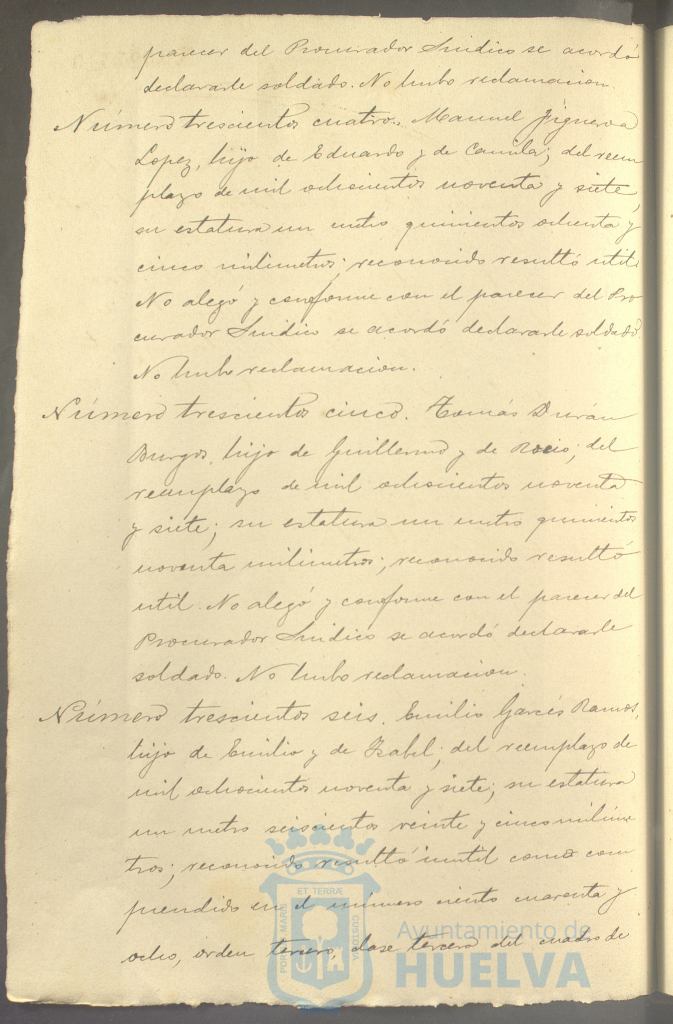 parecer del Procurador Sindico se acordó
declararle soldado. No hubo reclamacion.
Número trescientos cuatro. Manuel Figueroa
Lopez, hijo de Eduardo y de Camila; del reem
plazo de mil ochocientos noventa y siete,
su estatura un metro quinientos ochenta y
cinco milimetros; reconocido resultó util.
No alegó y conforme con el parecer del Pro
curador Sindico se acordó declararle soldado.
No hubo reclamacion.
Número trescientos cinco. Tomás Durán
Burgos, hijo de Guillermo y de Rocio; del
reemplazo de mil ochocientos noventa
y siete; su estatura un metro quinientos
noventa milimetros; reconocido resultó
util. No alegó y conforme con el parecer del
Procurador Sindico se acordó declararle
soldado. No hubo reclamacion.
Número trescientos seis. Emilio Garcés Ramos,
hijo de Emilio y de Isabel; del reemplazo de
mil ochocientos noventa y siete; su estatura
un metro seiscientos veinte y cinco milime
tros; reconocido resultó inutil como com
prendido en el número ciento cuarenta y
ocho, orden tercero, clase tercera del cuadro de
PORTUS MARIS
ET TERRÆ
CUSTODIA
Ayuntamiento de
HUELVA